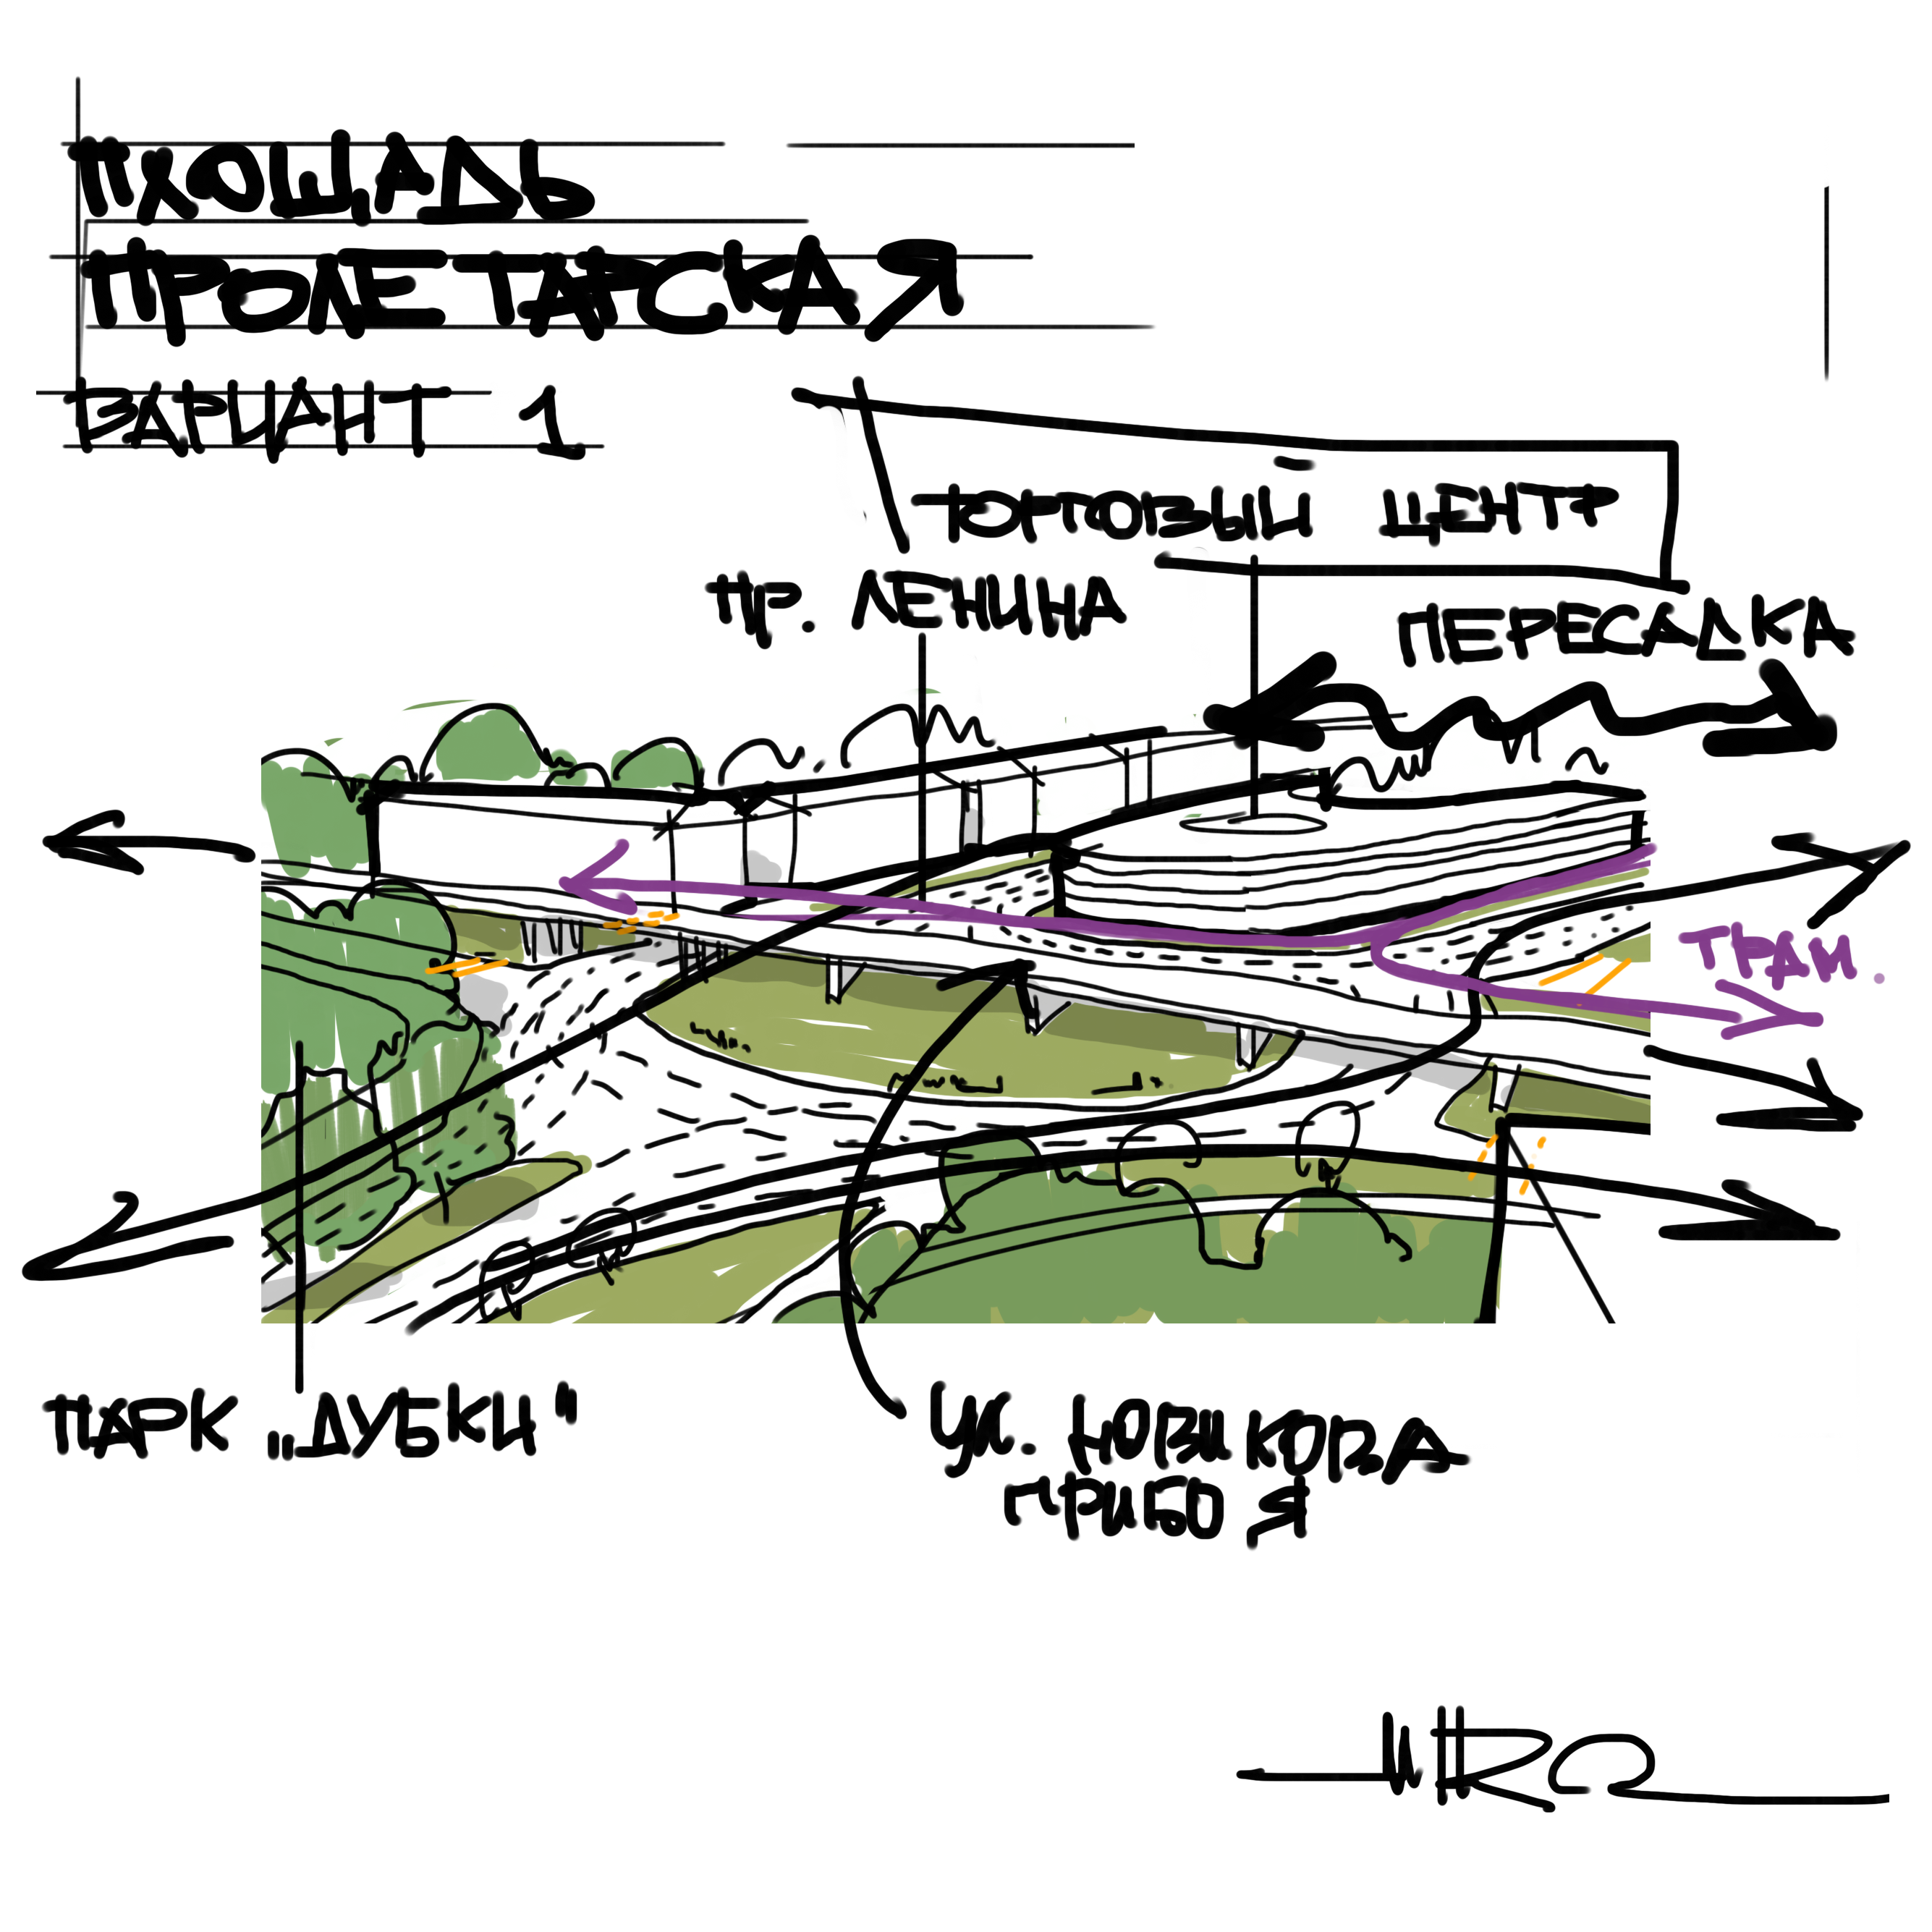 ПЛОЩАДЬ
ПРОЛЕТАРСКАЯ
ВАРИАНТ 1
ТОРГОВЫЙ ЦЕНТР
ПР. ЛЕНИНА
ПЕРЕСАДКА
ТРАМ.
ПАРК „ДУБКИ"
УЛ. НОВИКОВА
ПРИБОЯ